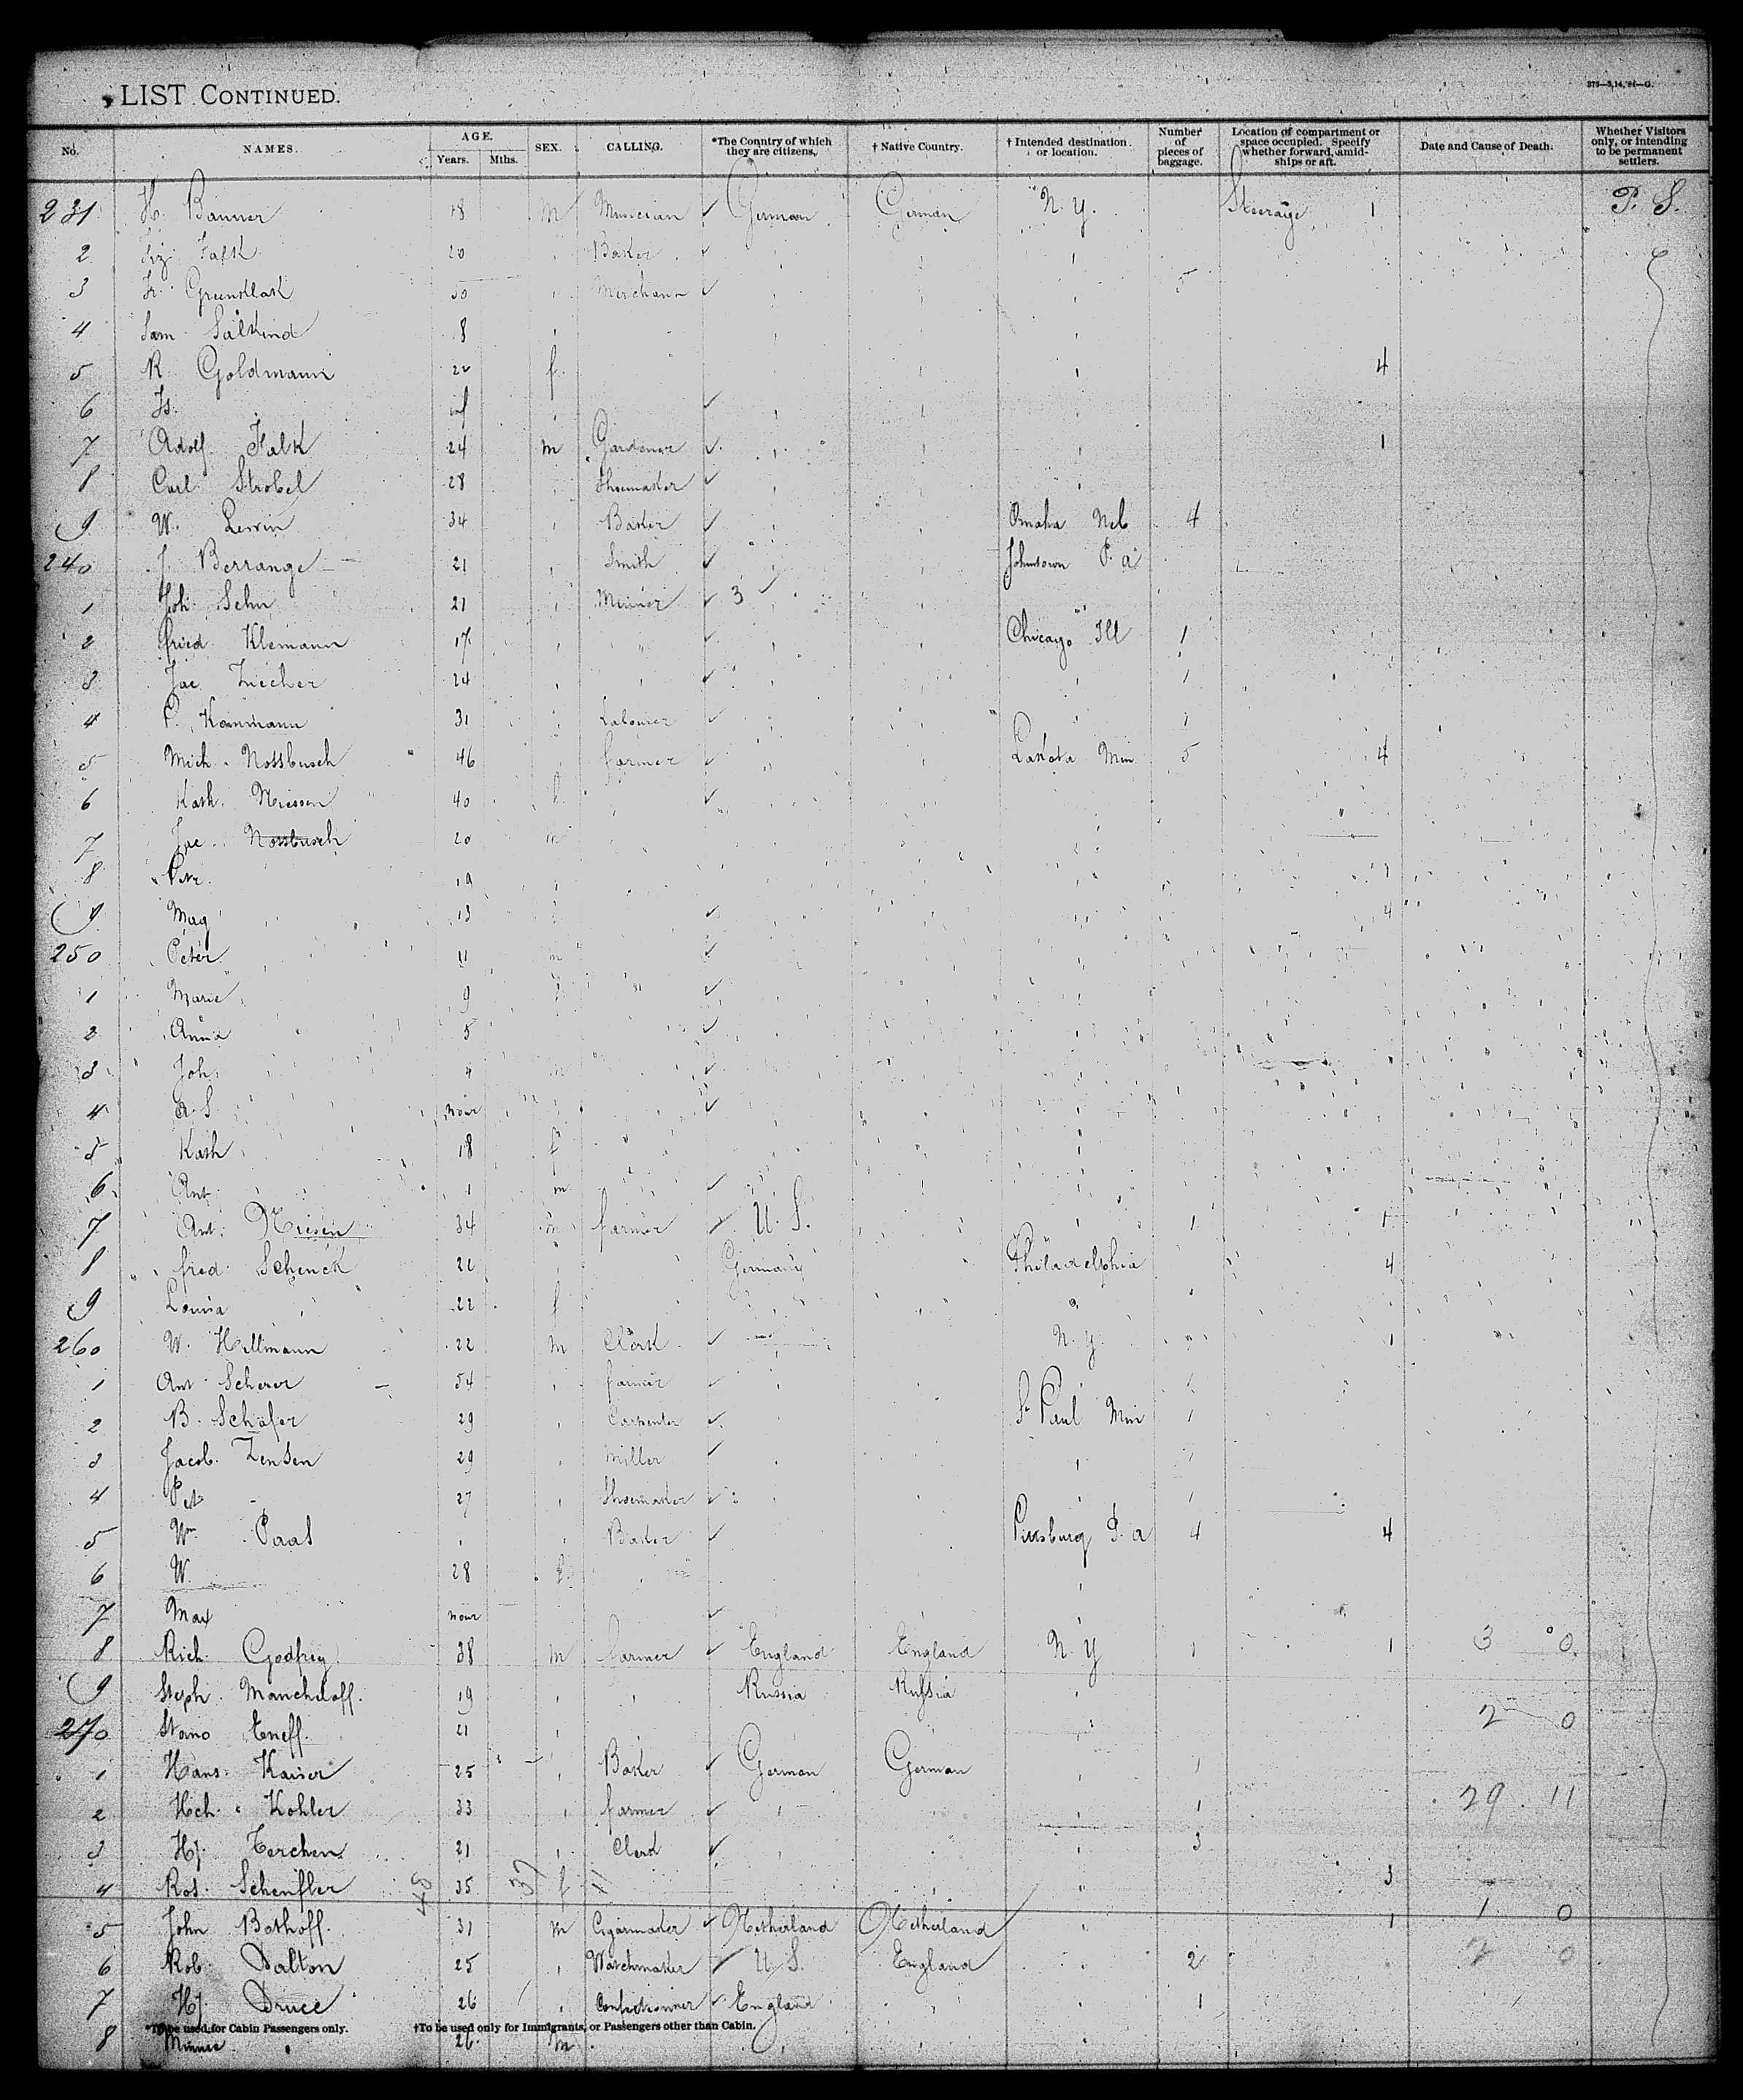 LIST CONTINUED.
373—3,14,'81—G.
No. NAMES. AGE. Years. Mths. SEX. CALLING. *The Country of which they are citizens. † Native Country. † Intended destination or location. Number of pieces of baggage. Location of compartment or space occupied. Specify whether forward, amidships or aft. Date and Cause of Death. Whether Visitors only, or intending to be permanent settlers.
231 H. Banner 18 m Musician ✓ German German N. Y. Steerage 1 P. S.
2 Falk 20 Baker ✓
3 50 Merchant ✓ 5
4 Sam Salkind 8
5 R. Goldmann 22 f. 4
6 Is. inf ✓
7 Adolf Falk 24 m Gardener ✓ 1
8 Carl Strobel 28 Shoemaker ✓
9 W. Lewin 34 Baker ✓ Omaha Neb 4
240 J. Berrange 21 Smith ✓ Johnstown P. a
1 Joh. Sehn 21 ✓ 3 ✓
2 fried Klemann 17 ✓ Chicago Ill 1
3 Jac 24 ✓ 1
4 P. 31 Labourer ✓ 1
5 Mich. Nossbusch 46 farmer ✓ Lakota Min 5 4
6 Kath. Niessen 40 f ✓
7 Jac. Nossbusch 20 m
8 Petr. 19
9 Mag 13 ✓ 4
250 Peter 11 m ✓
1 Marie 9 f ✓
2 Anna 5 ✓
3 Joh. 4 m ✓
4 ✓
5 Kath 18 f
6 Ant 1 m ✓
7 Ant. Niesen 34 m farmer ✓ U. S. 1 1
8 fred. Schenck 22 Germany Philadelphia 4
9 Louisa 22 f
260 W. Hillmann 22 m Clerk ✓ N. Y. 1
1 Ant. Scherer 54 farmer ✓
2 B. Schäfer 29 Carpenter ✓ St Paul Min 1
3 Jacob. Zensen 29 Miller ✓
4 Pet 27 Shoemaker ✓ 1
5 Wm Paas Baker ✓ Pittsburg P. a 4 4
6 W. 28 f
7 Max ✓
8 Rich. Godfrey 38 m farmer ✓ England England N. Y 1 1 3 0
9 Steph. Mancheloff. 19 Russia Russia
270 Stano Eneff. 21 2 0
1 Hans. Kaiser 25 Baker ✓ German German 1
2 Hch. Kohler 33 farmer ✓ 1 29 11
3 Hy. Terchen 21 Clerk ✓ 3
4 Ros. Scheufler 48 35 37 f 11 3
5 John Bothoff. 31 m Cigarmaker ✓ Netherland Netherland 1 1 0
6 Rob. Dalton 25 Watchmaker ✓ U. S. England 2 2 0
7 Hy. Druce 26 Confectioner ✓ England 1
*To be used for Cabin Passengers only. †To be used only for Immigrants, or Passengers other than Cabin.
8 Minnie 26 m